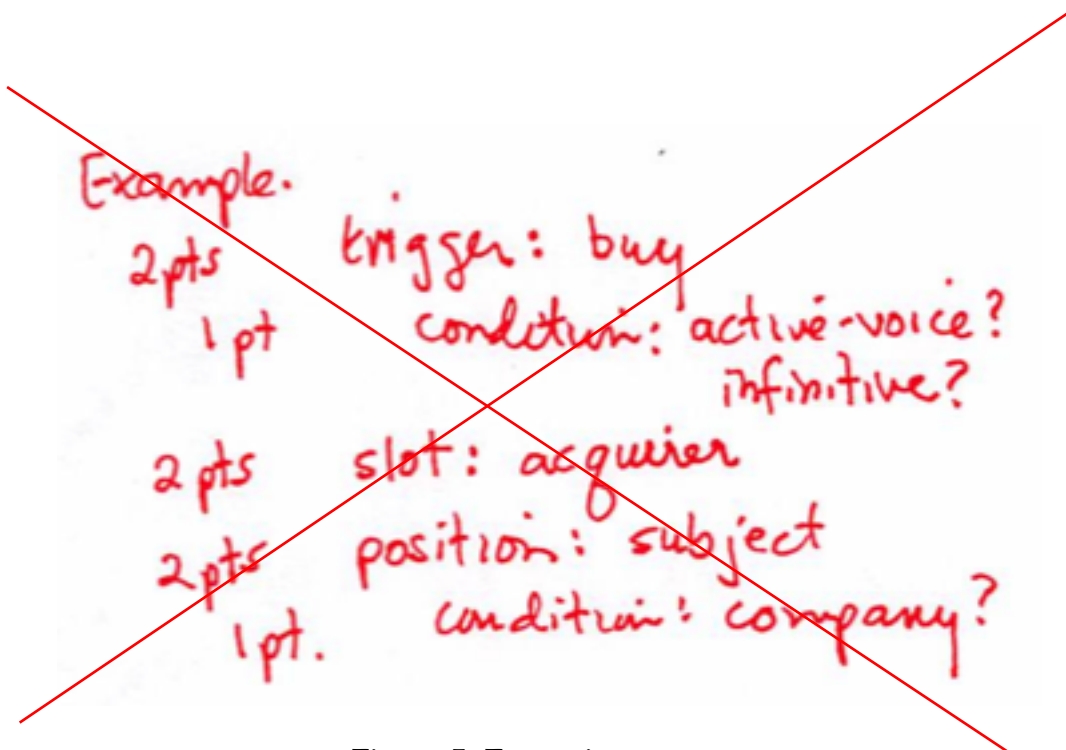 Example.
2pts trigger: buy
1 pt condition: active-voice?
infinitive?
2 pts slot: acquirer
2 pts position: subject
condition: company?
1 pt.